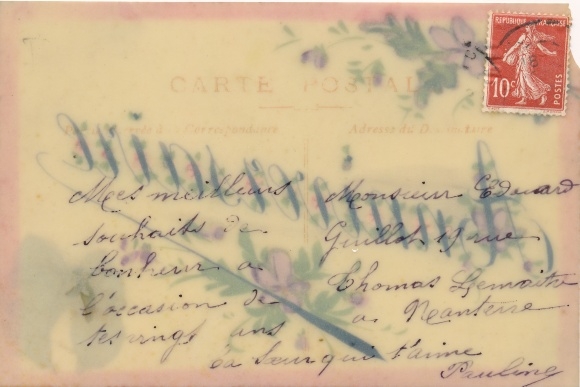 RÉPUBLIQUE FRANÇAISE
10c
POSTES
CARTE POSTALE
Correspondance
Adresse du Destinataire
Anniversaire
Mes meilleurs
souhaits de
bonheur a
l'occasion de
tes vingt ans
ta Sœur qui t'aime
Pauline
Monsieur Edouard
Guillot 19 rue
Thomas Lemaitre
a Nanterre